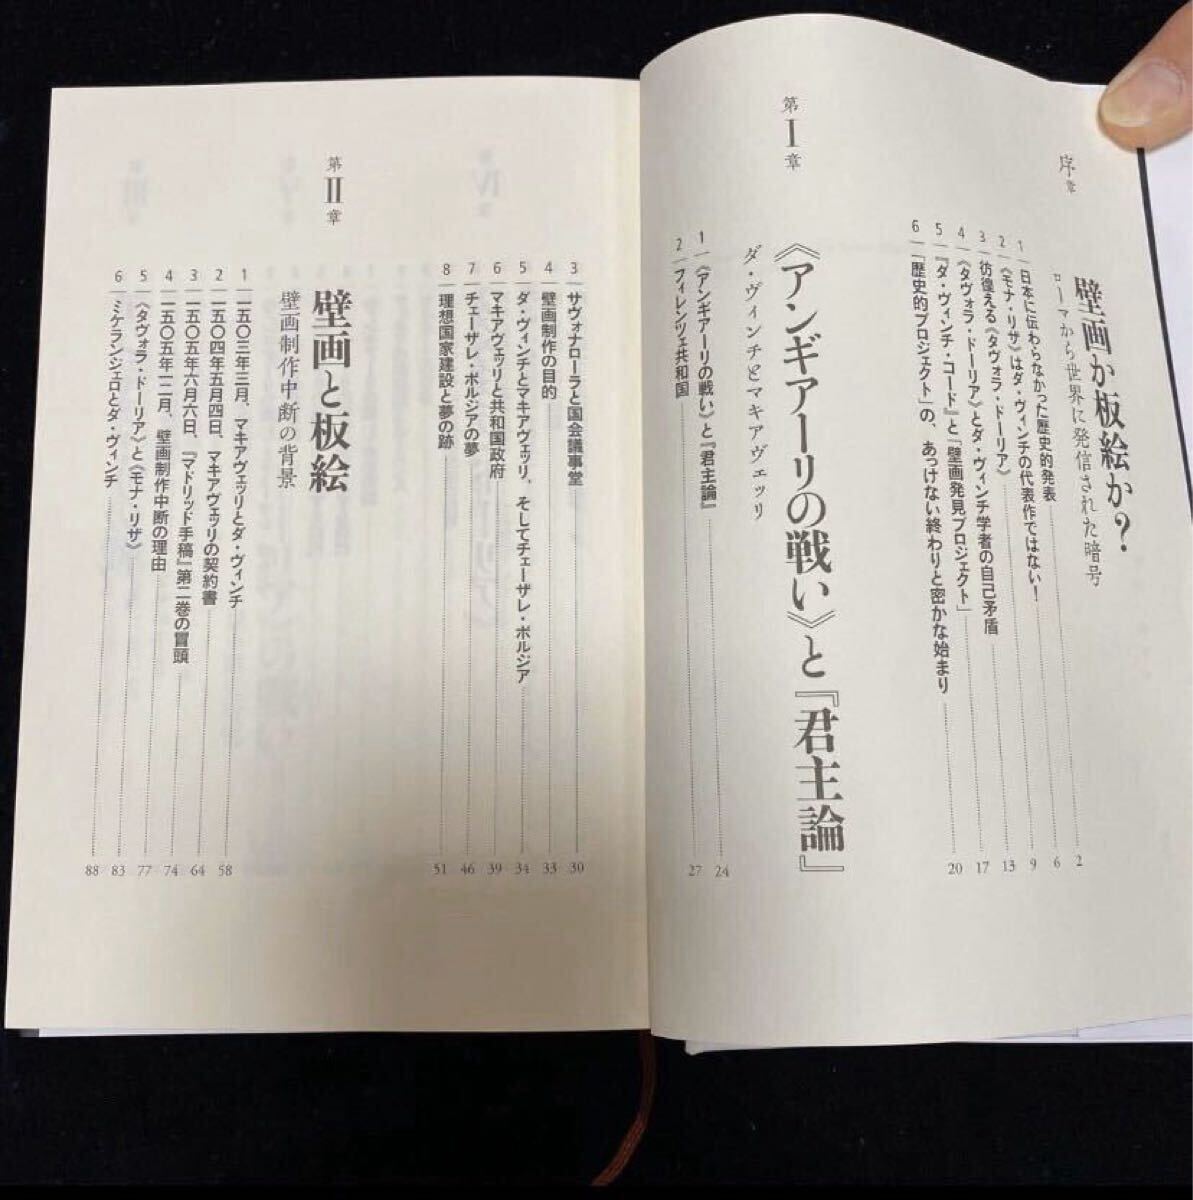 序章
壁画か板絵か?
ローマから世界に発信された暗号
1 日本に伝わらなかった歴史的発表 2
2 《モナ・リザ》はダ・ヴィンチの代表作ではない! 6
3 彷徨える《タヴォラ・ドーリア》 9
4 《タヴォラ・ドーリア》とダ・ヴィンチ学者の自己矛盾 13
5 『ダ・ヴィンチ・コード』と「壁画発見プロジェクト」 17
6 「歴史的プロジェクト」の、あっけない終わりと密かな始まり 20
第Ⅰ章
《アンギアーリの戦い》と『君主論』
ダ・ヴィンチとマキアヴェッリ
1 《アンギアーリの戦い》と『君主論』 24
2 フィレンツェ共和国 27
3 サヴォナローラと国会議事堂 30
4 壁画制作の目的 33
5 ダ・ヴィンチとマキアヴェッリ、そしてチェーザレ・ボルジア 34
6 マキアヴェッリと共和国政府 39
7 チェーザレ・ボルジアの夢 46
8 理想国家建設と夢の跡 51
第Ⅱ章
壁画と板絵
壁画制作中断の背景
1 一五〇三年三月、マキアヴェッリとダ・ヴィンチ 58
2 一五〇四年五月四日、マキアヴェッリの契約書 64
3 一五〇五年六月六日、『マドリッド手稿』第二巻の冒頭 74
4 一五〇五年一二月、壁画制作中断の理由 77
5 《タヴォラ・ドーリア》と《モナ・リザ》 83
6 ミケランジェロとダ・ヴィンチ 88